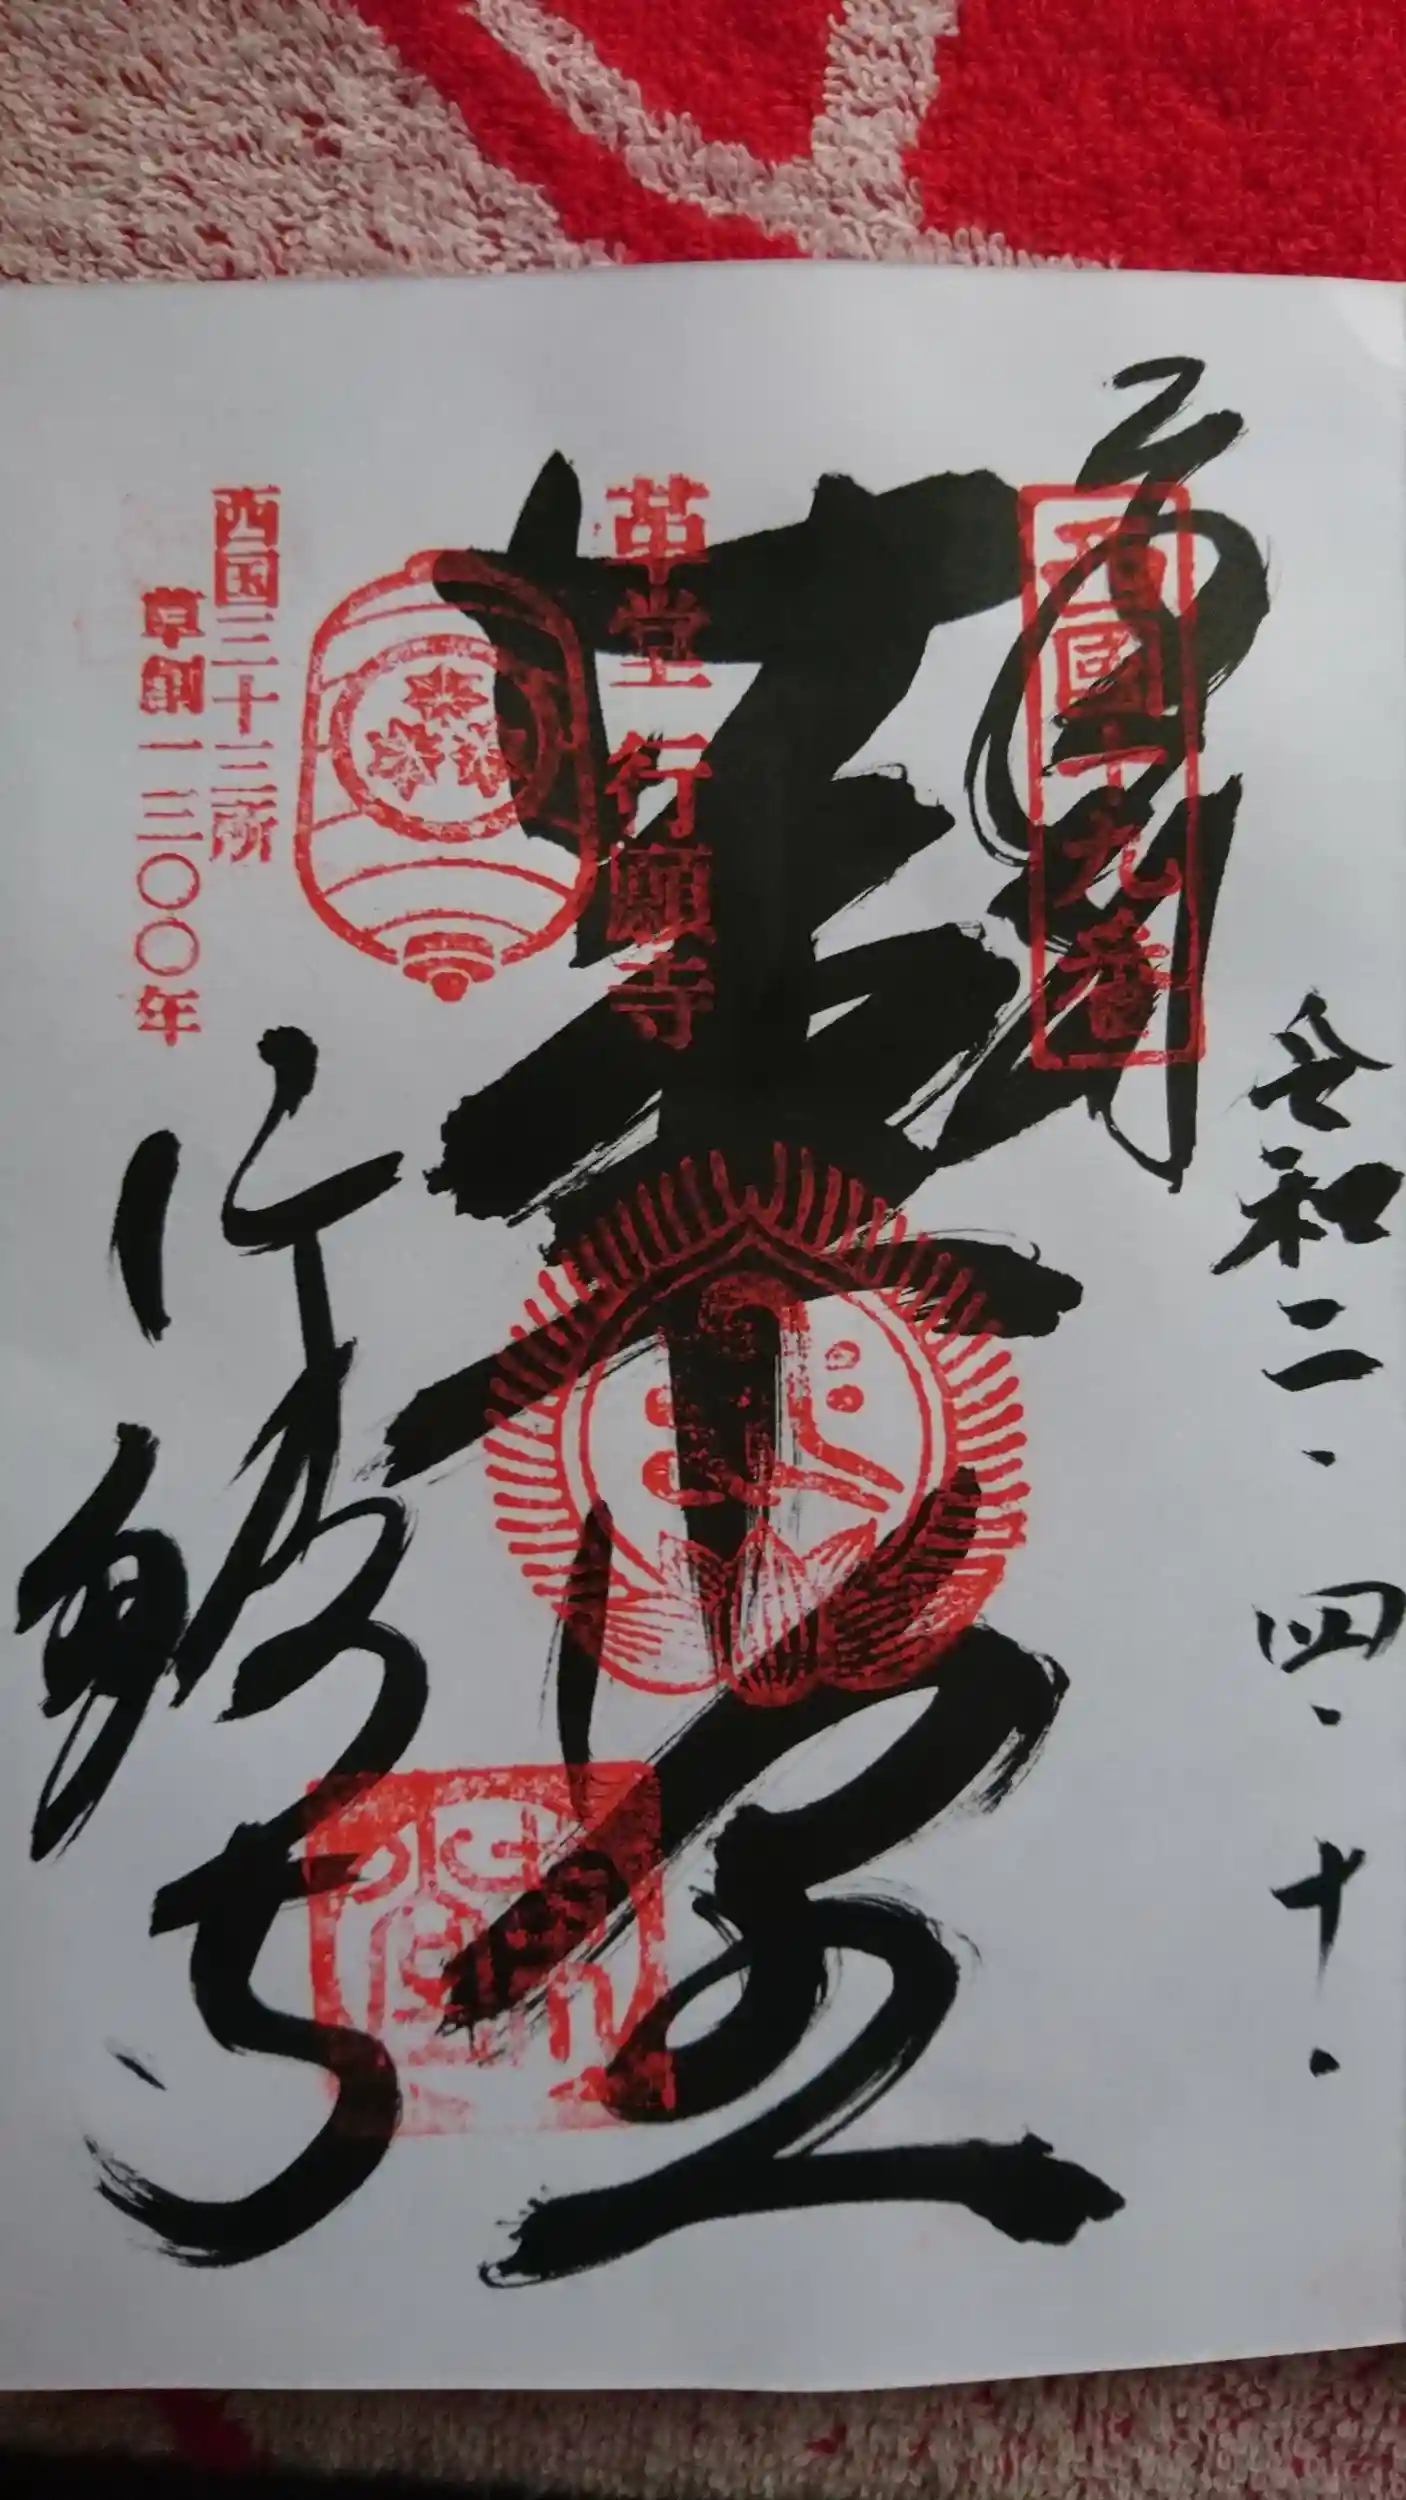 令和二.四.十.
西國十九番
奉拝
革堂
革堂 行願寺
行願寺
西国三十三所
草創一三〇〇年